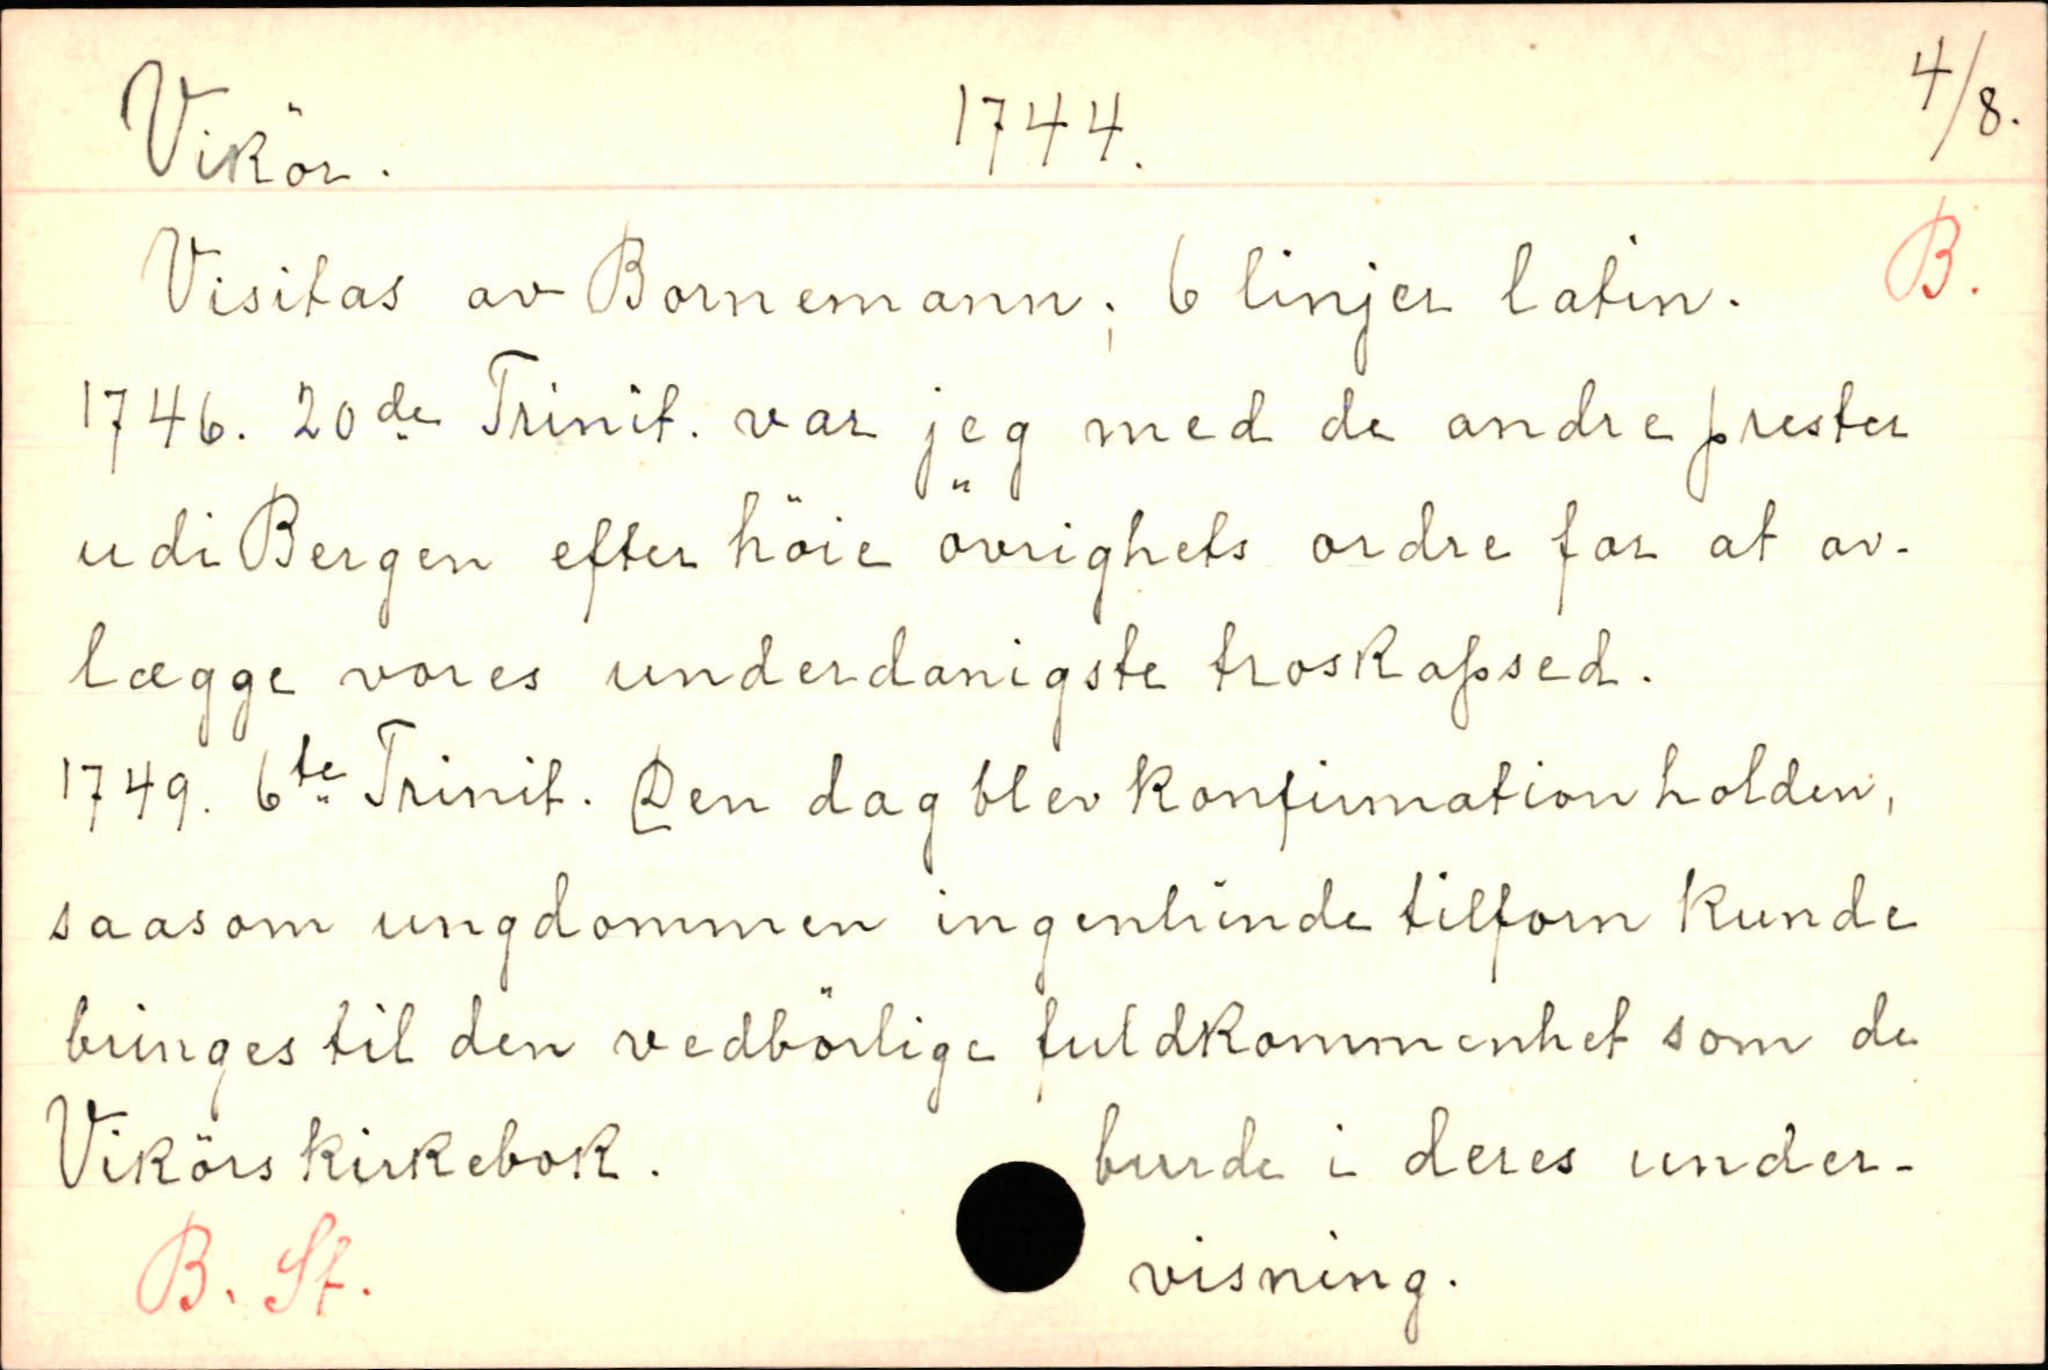 Vikör. 1744. 4/8.
Visitas av Bornemann; 6 linjer latin. B.
1746. 20de Trinit. var jeg med de andre prester
udi Bergen efter höie övrighets ordre for at av-
lægge vores underdanigste troskapsed.
1749. 6te Trinit. Den dag blev konfirmation holden,
saasom ungdommen ingenlunde tilforn kunde
bringes til den vedbörlige fuldkommenhet som de
Vikörs kirkebok. burde i deres under-
visning.
B. St.